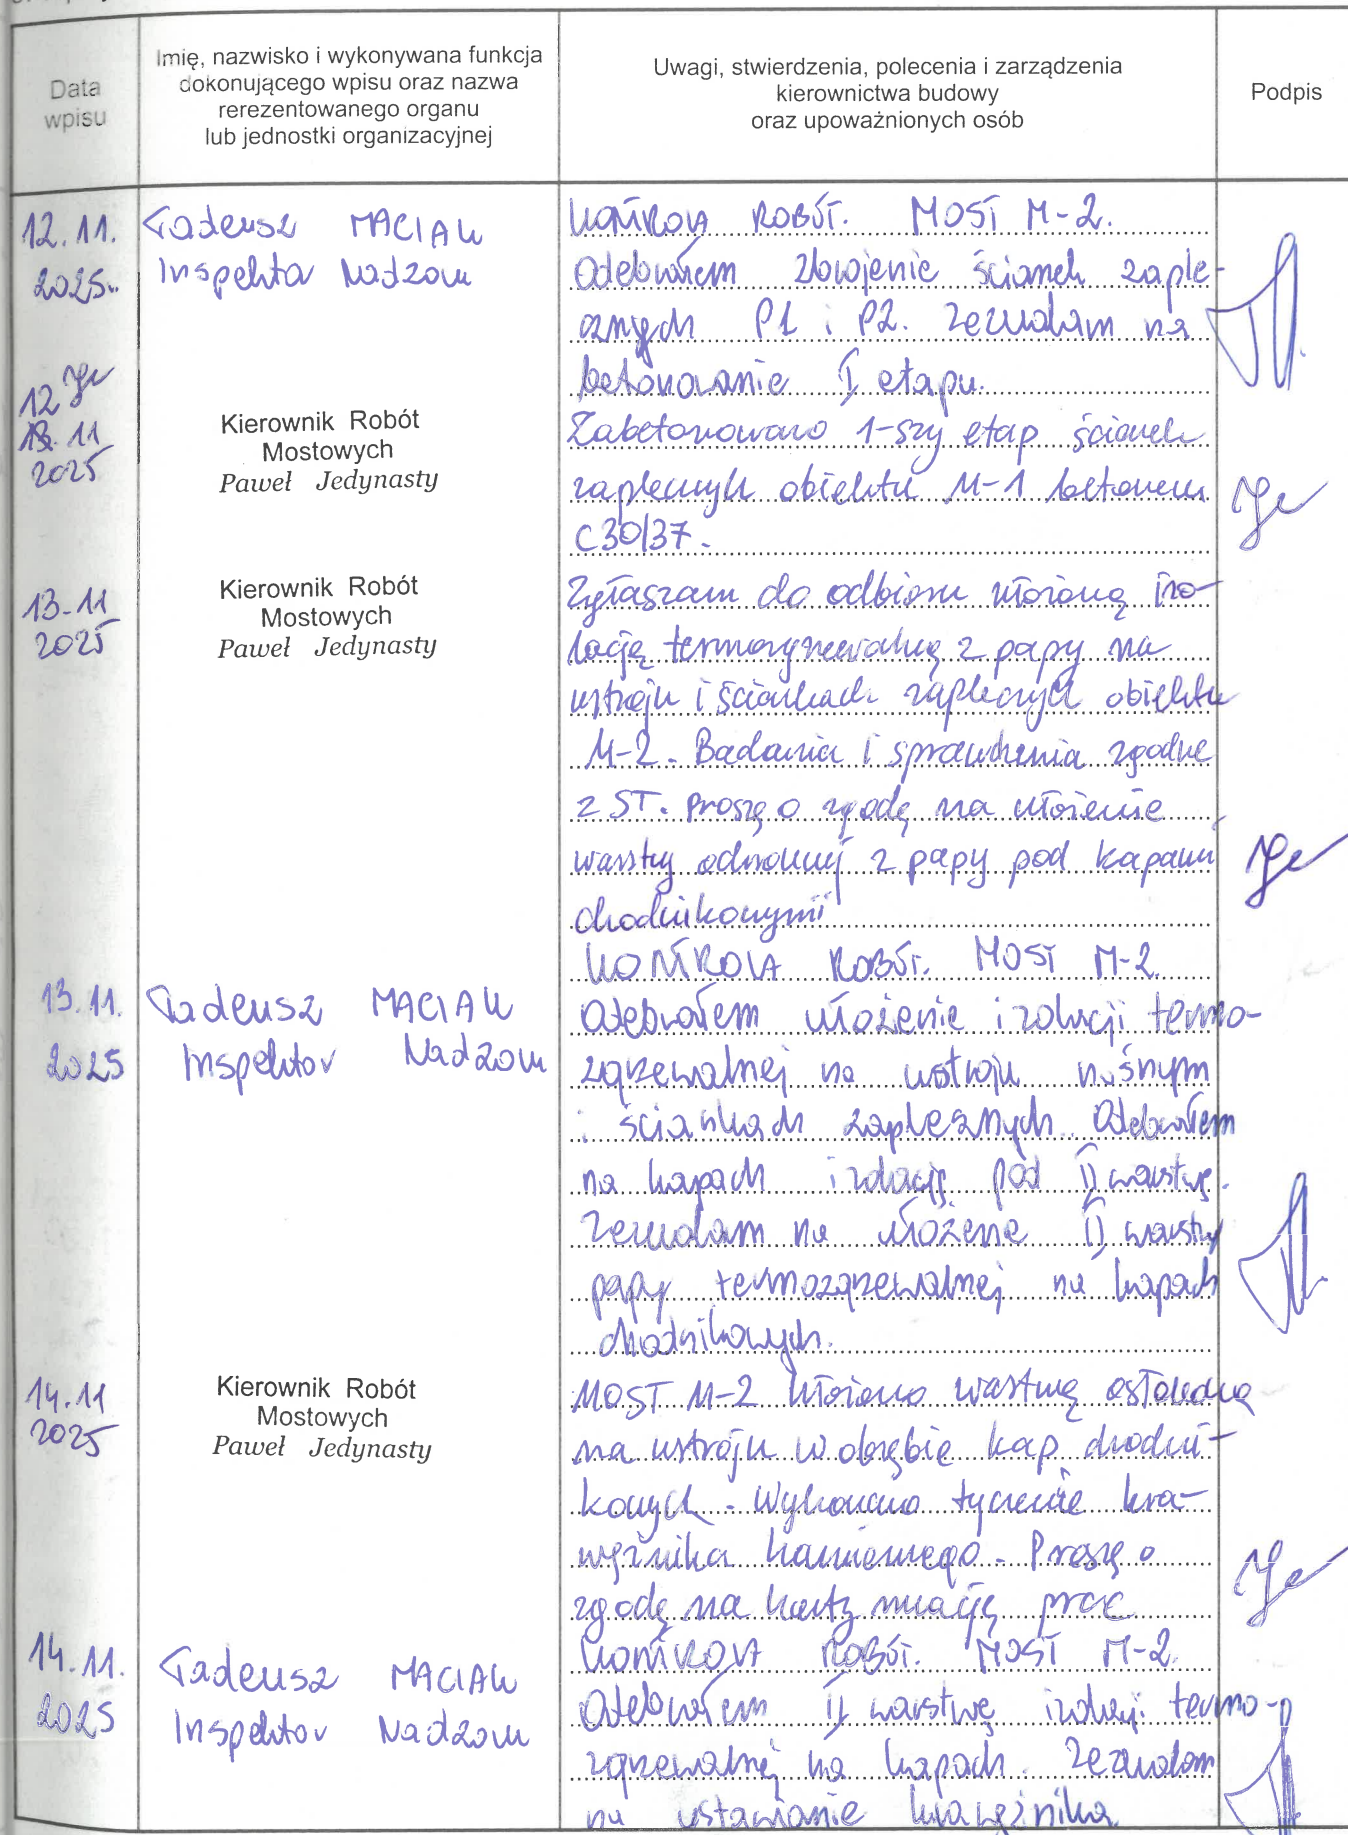 Data
wpisu
Imię, nazwisko i wykonywana funkcja
dokonującego wpisu oraz nazwa
rerezentowanego organu
lub jednostki organizacyjnej
Uwagi, stwierdzenia, polecenia i zarządzenia
kierownictwa budowy
oraz upoważnionych osób
Podpis
12.11.
2025
Tadeusz MACIAK
Inspektor Nadzoru
KONTROLA ROBÓT. MOST M-2.
Odebrałem zbrojenie ścianek zaple-
cznych P1 i P2. Zezwalam na
betonowanie I etapu.
12
13.11
2025
Kierownik Robót
Mostowych
Paweł Jedynasty
Zabetonowano 1-szy etap ścianek
zaplecznych obiektu M-1 betonem
C30/37.
13-11
2025
Kierownik Robót
Mostowych
Paweł Jedynasty
Zgłaszam do odbioru ułożoną izo-
lację termozgrzewalną z papy na
ustroju i ściankach zaplecznych obiektu
M-2. Badania i sprawdzenia zgodne
z ST. Proszę o zgodę na ułożenie
warstwy ochronnej z papy pod kapami
chodnikowymi
13.11.
2025
Tadeusz MACIAK
Inspektor Nadzoru
KONTROLA ROBÓT. MOST M-2.
Odebrałem ułożenie izolacji termo-
zgrzewalnej na ustroju nośnym
i ściankach zaplecznych. Odebrałem
na kapach izolację pod II warstwę.
Zezwalam na ułożenie II warstwy
papy termozgrzewalnej na kapach
chodnikowych.
14.11
2025
Kierownik Robót
Mostowych
Paweł Jedynasty
MOST M-2 Ułożono warstwę osłonową
na ustroju w obrębie kap chodni-
kowych. Wykonano tyczenie kra-
wężnika kamiennego. Proszę o
zgodę na kontynuację prac
14.11.
2025
Tadeusz MACIAK
Inspektor Nadzoru
KONTROLA ROBÓT. MOST M-2.
Odebrałem II warstwę izolacji termo-
zgrzewalnej na kapach. Zezwalam
na ustawianie krawężnika.